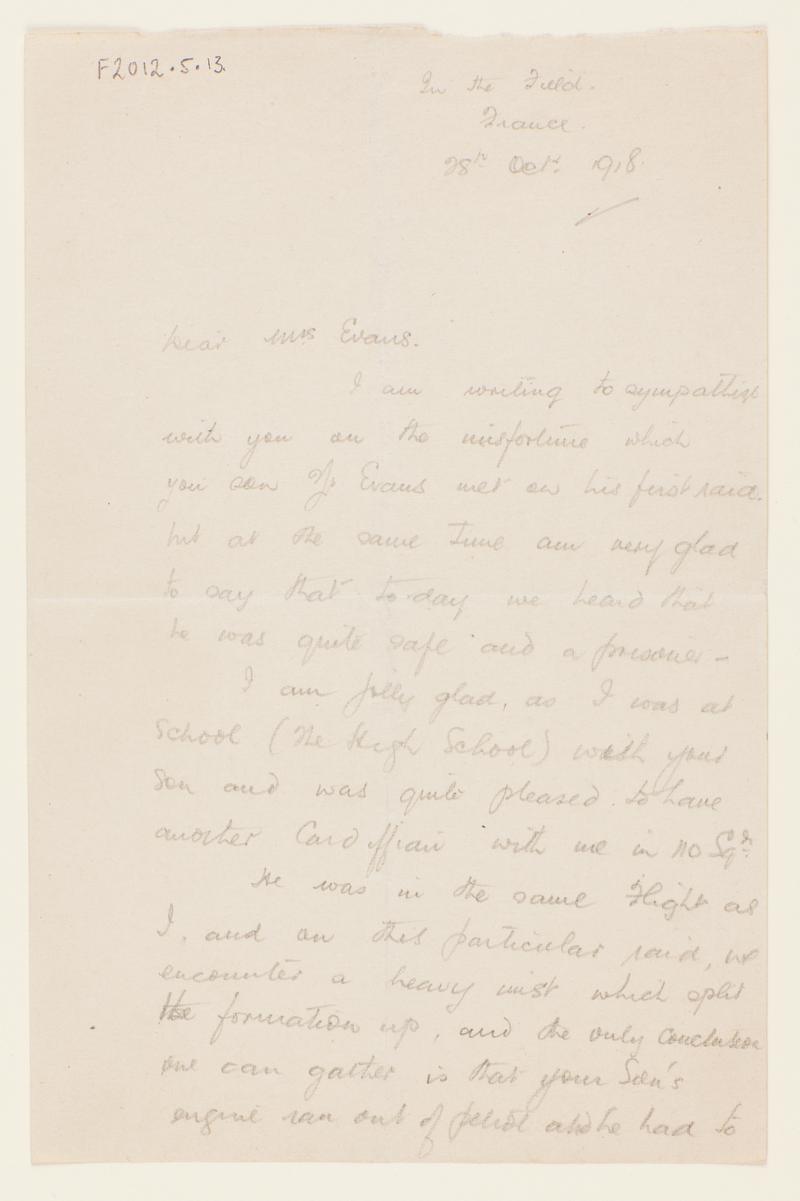 F2012.5.13.
In the Field.
France.
28th Octr. 1918.
Dear Mrs Evans.
I am writing to sympathise
with you on the misfortune which
you son Mr Evans met on his first raid.
but at the same time am very glad
to say that to-day we heard that
he was quite safe and a prisoner -
I am jolly glad, as I was at
School (The High School) with your
Son and was quite pleased to have
another Cardiffian with me in 110 Sqdn.
He was in the same Flight as
I, and on this particular raid, we
encounter a heavy mist which split
the formation up, and the only conclusion
one can gather is that your Son's
engine ran out of petrol and he had to